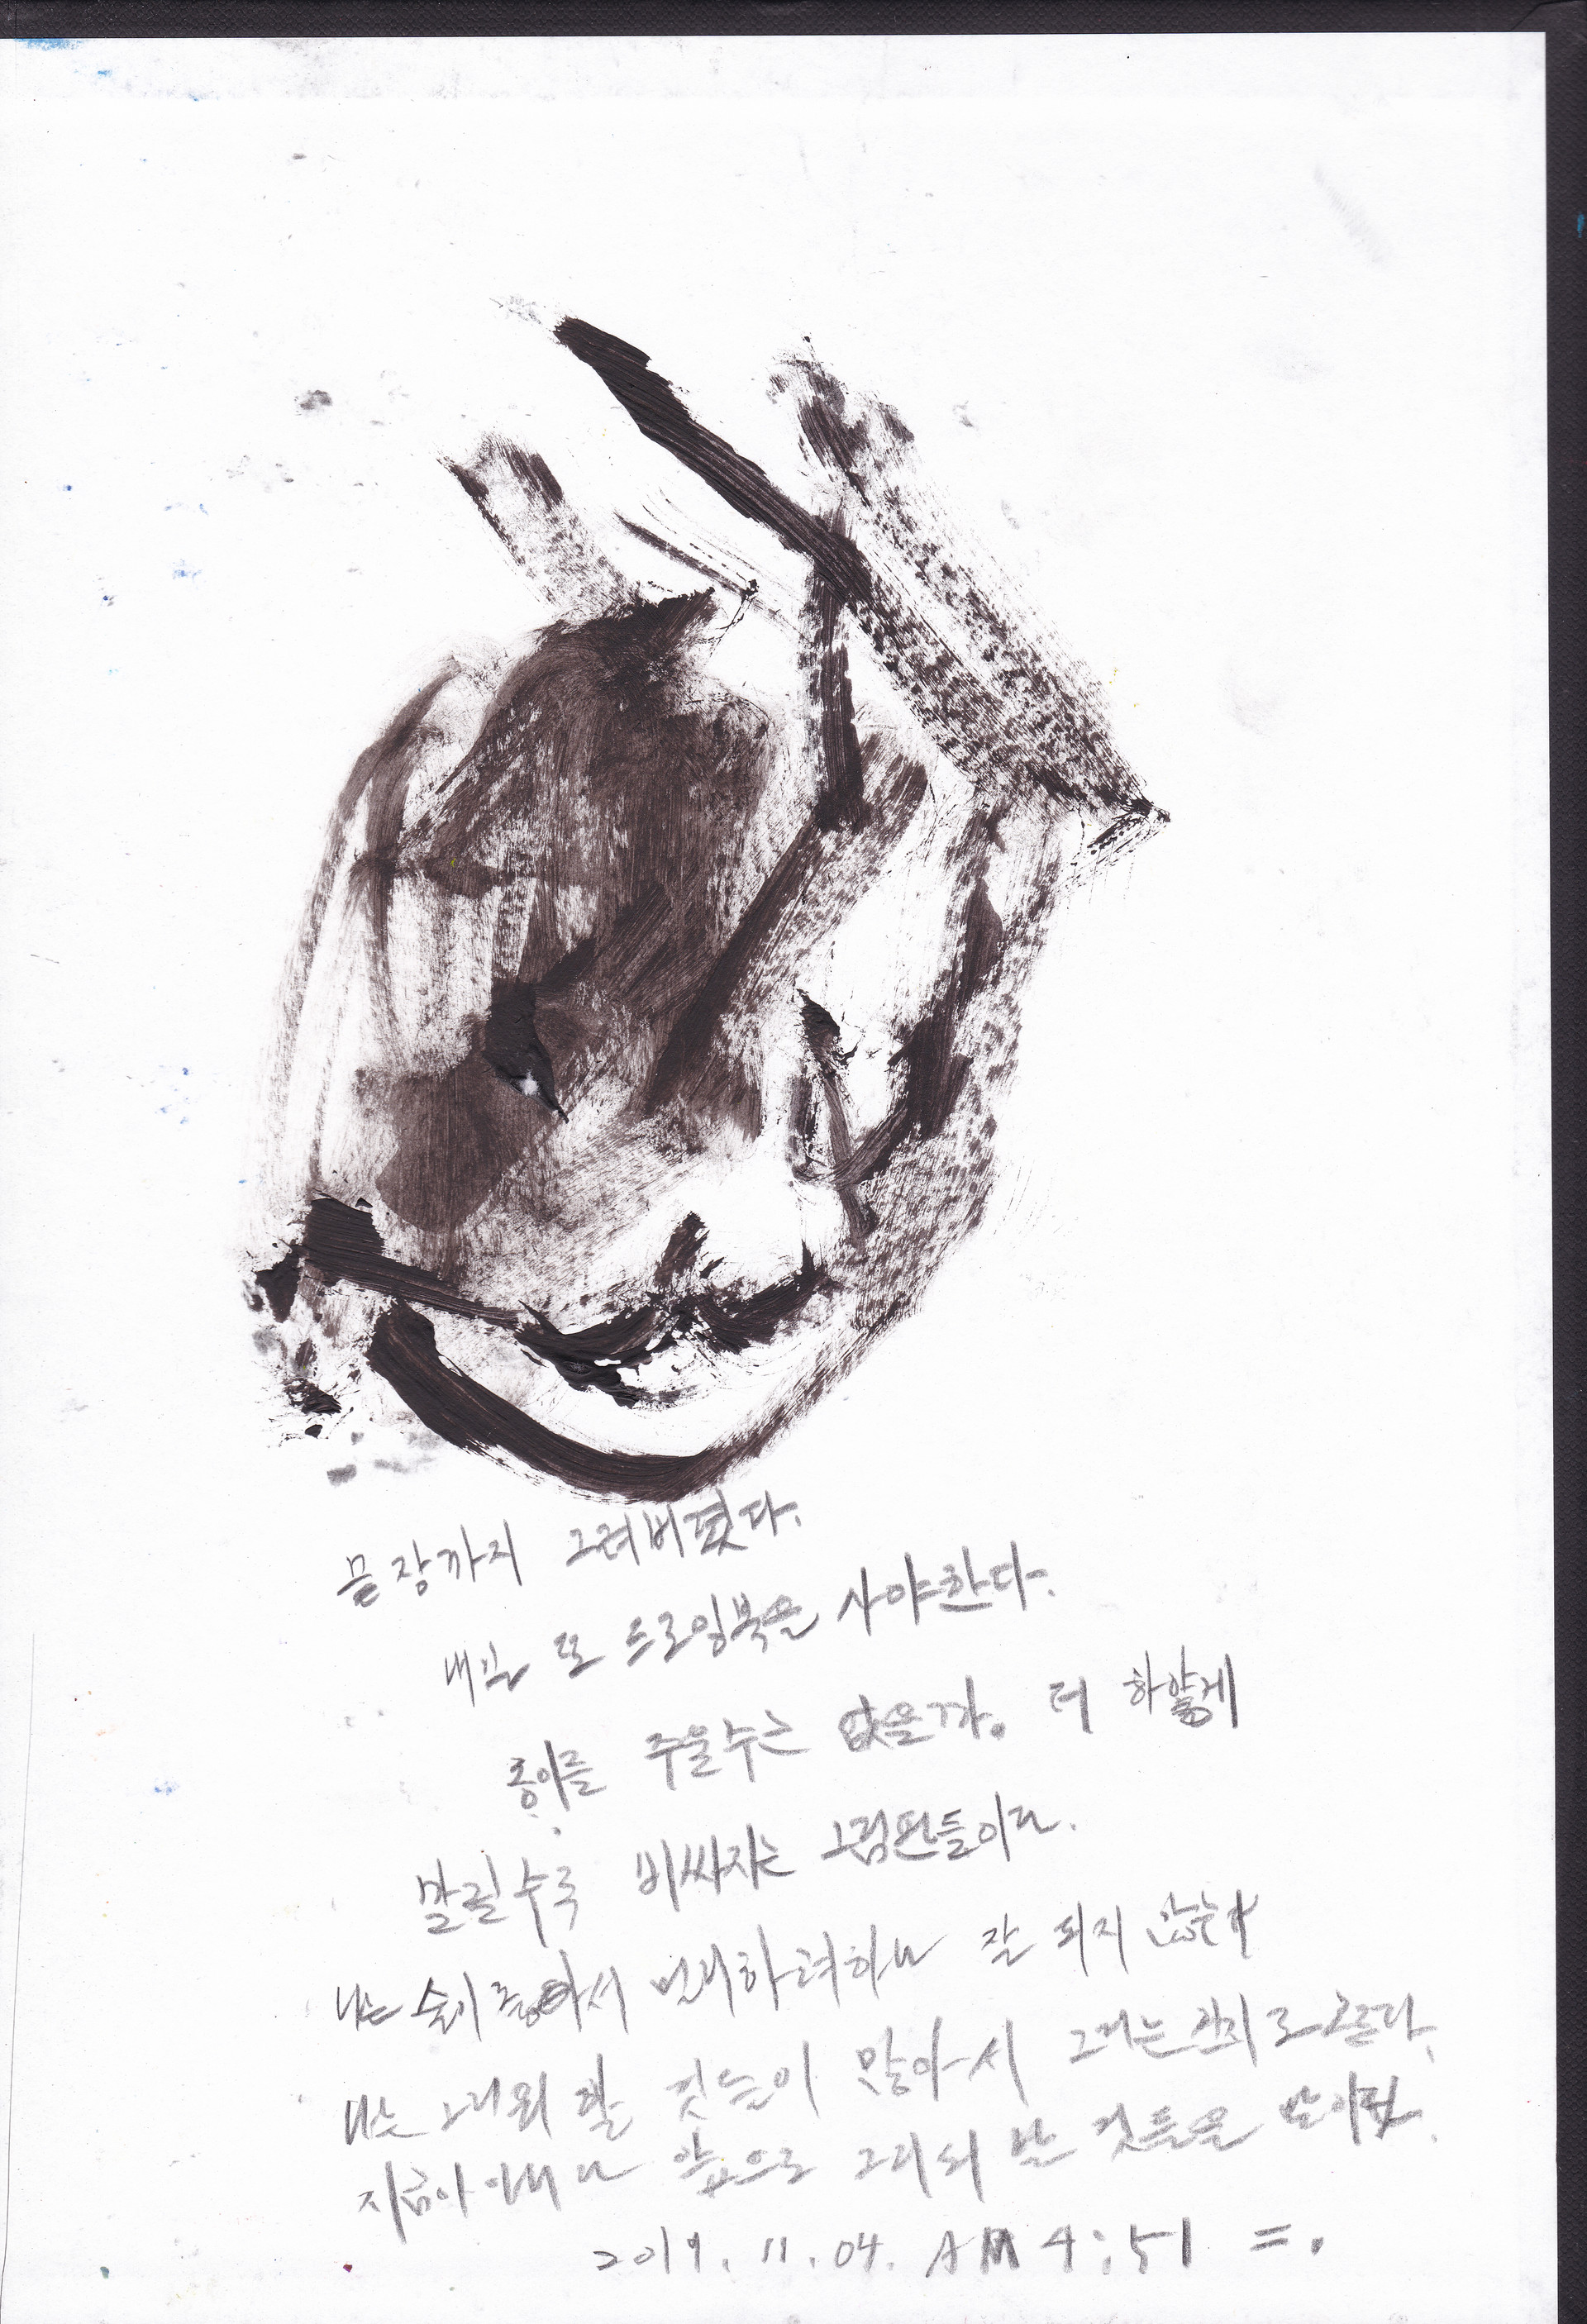 끝장까지 그려버렸다.
내일 또 드로잉북을 사야한다.
종이를 주울수는 없을까. 더 하얗게
말릴수록 비싸지는 그림판들이다.
나는 술이 좋아서 하려하나 잘 되지 않는다
나는 그리워 할 것들이 많아서 그게는 로
지금이 아니라 앞으로 그리워 할 것들을
2019. 11. 04. AM 4:51